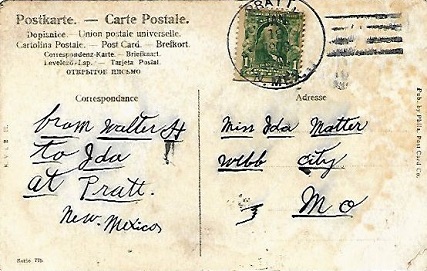 Postkarte. — Carte Postale.
Dopisnice. — Union postale universelle.
Cartolina Postale. — Post Card. — Brefkort.
Correspondenz-Karte. — Brievkaart.
Levelező-Lap. — Tarjeta Postal.
ОТКРЫТОЕ ПИСЬМО
PRATT,
N. MEX.
1
1
Correspondance
Adresse
from Walter H
to Ida
at Pratt.
New Mexico
Miss Ida Matter
Webb City
Mo
Pub. by Phila. Post Card Co.